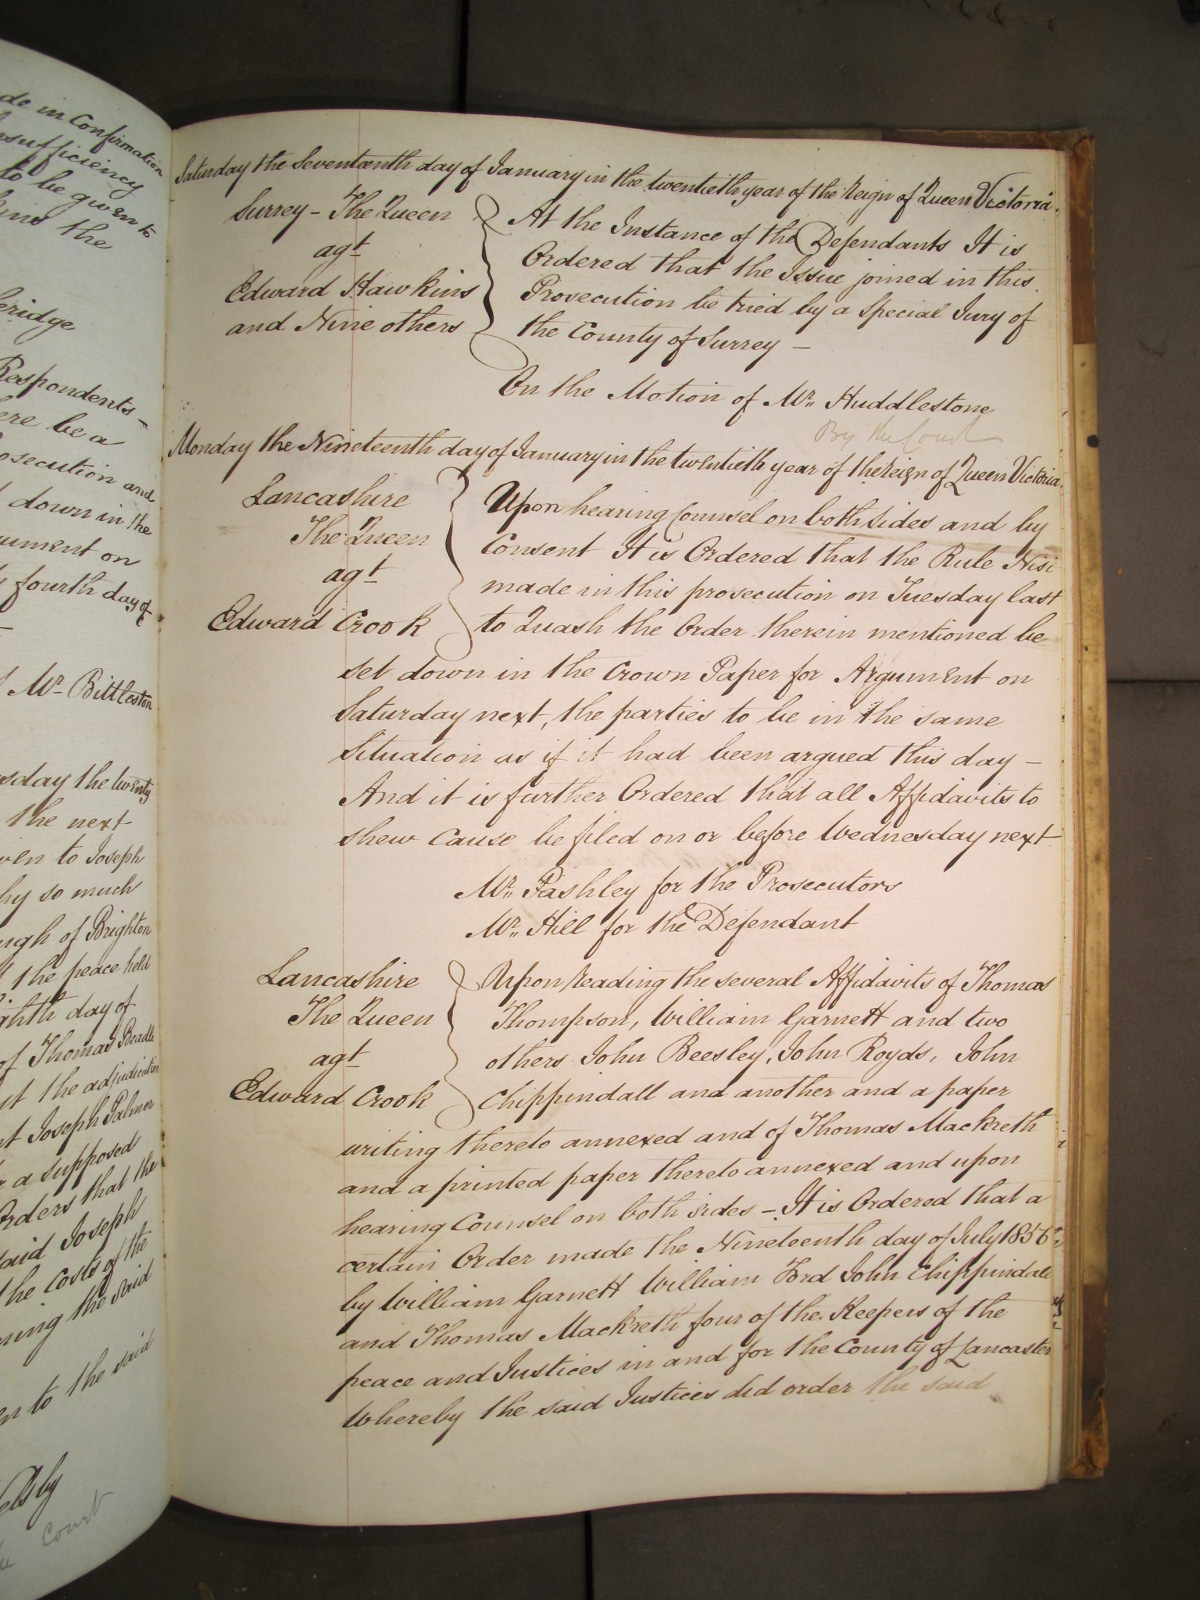 de in Confirmation
nsufficiency
to be given to
the
eridge
Respondents -
ere be a
osecution and
down in the
ument on
fourth day of
Mr. Bittleston
sday the twenty
the next
ven to Joseph
by so much
ugh of Brighton
the peace held
ighth day of
of Thomas Beadle
st the adjudication
nt Joseph Palmer
r a supposed
Orders that the
said Joseph
the costs of the
ning the said
en to the said
elsby
Court
Saturday the Seventeenth day of January in the twentieth year of the Reign of Queen Victoria.
Surrey - The Queen
agt
Edward Hawkins
and Nine others
At the Instance of the Defendants It is
Ordered that the Issue joined in this
Prosecution be tried by a Special Jury of
the County of Surrey -
On the Motion of Mr. Huddlestone
By the Court
Monday the Nineteenth day of January in the twentieth year of the Reign of Queen Victoria.
Lancashire
The Queen
agt
Edward Crook
Upon hearing Counsel on both sides and by
Consent It is Ordered that the Rule Nisi
made in this prosecution on Tuesday last
to Quash the Order therein mentioned be
set down in the Crown Paper for Argument on
Saturday next, the parties to be in the same
Situation as if it had been argued this day -
And it is further Ordered that all Affidavits to
shew Cause be filed on or before Wednesday next
Mr. Pashley for the Prosecutors
Mr. Hill for the Defendant
Lancashire
The Queen
agt
Edward Crook
Upon reading the several Affidavits of Thomas
Thompson, William Garnett and two
others John Beesley, John Royds, John
Chippindall and another and a paper
writing thereto annexed and of Thomas Mackreth
and a printed paper thereto annexed and upon
hearing Counsel on both sides - It is Ordered that a
certain Order made the Nineteenth day of July 1856
by William Garnett William Ford John Chippindale
and Thomas Mackreth four of the Keepers of the
peace and Justices in and for the County of Lancaster
Whereby the said Justices did order the said